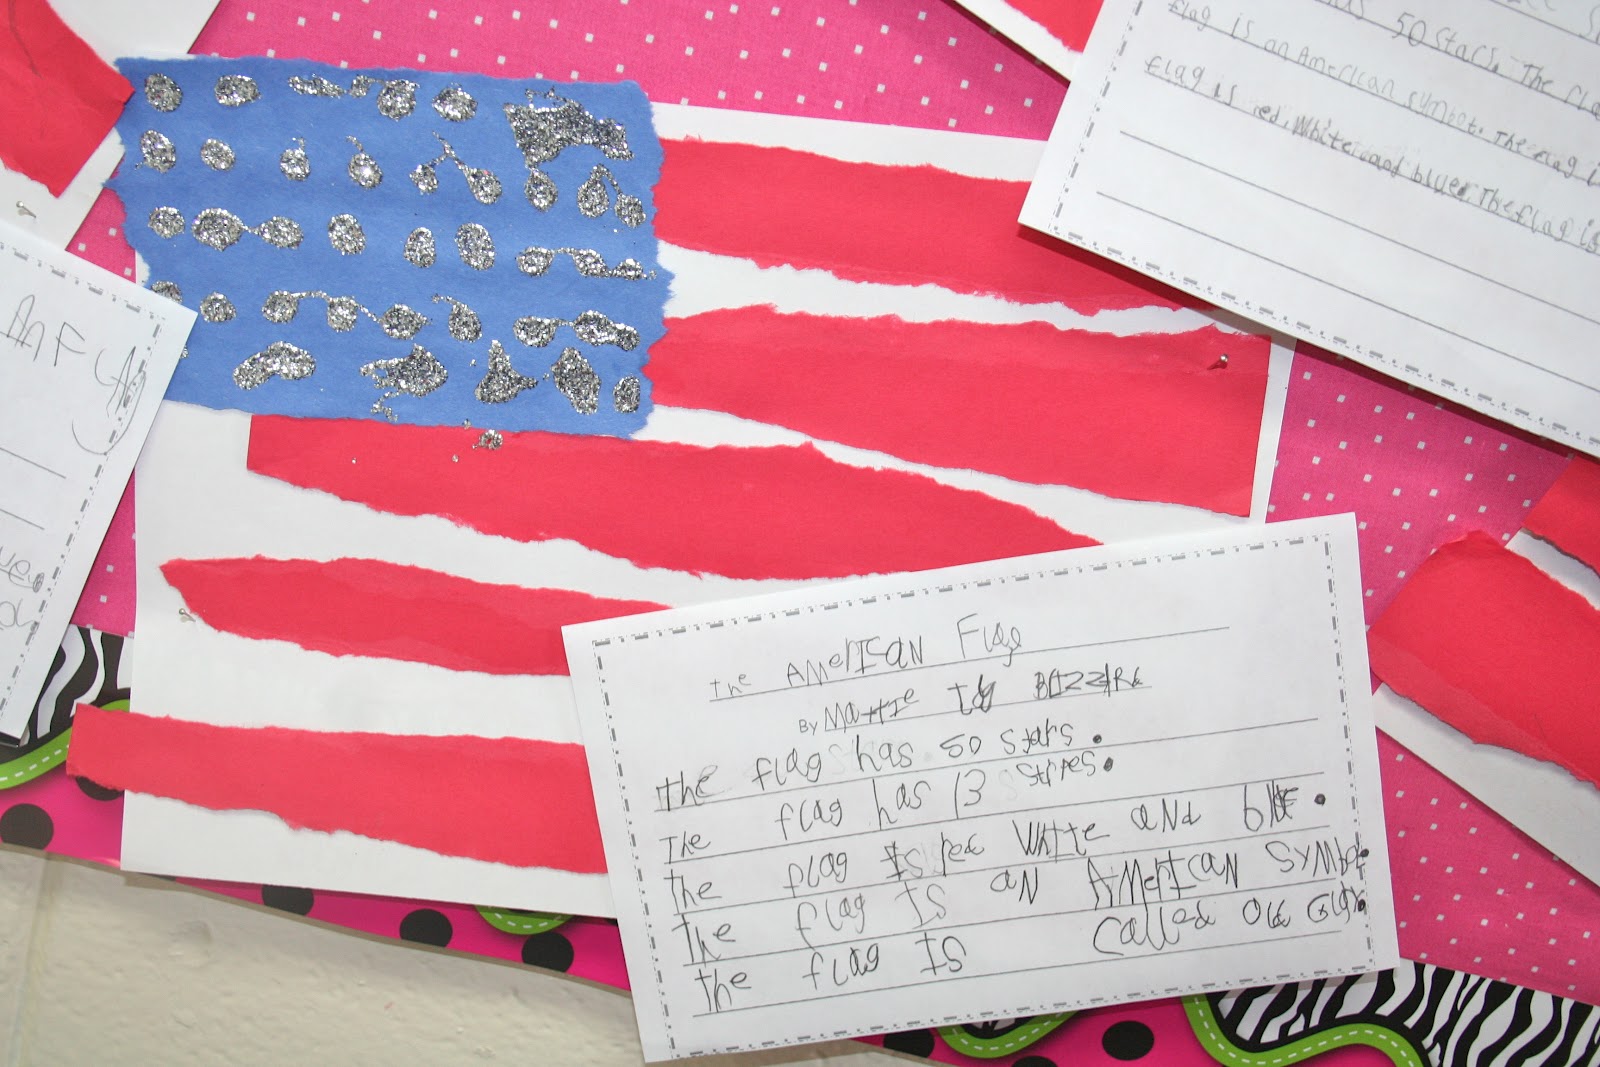 50 Stars. The Fla
Flag is an American symbol. The Flag i
Flag is red. White and blue. The Flag is
the AmerICAN Flag
By MattIE
the flag has 50 stars.
The flag has 13 stripes.
the flag Is red WhIte and blue.
the flag Is an AmerIcan symbol.
the flag Is called Old Glory.